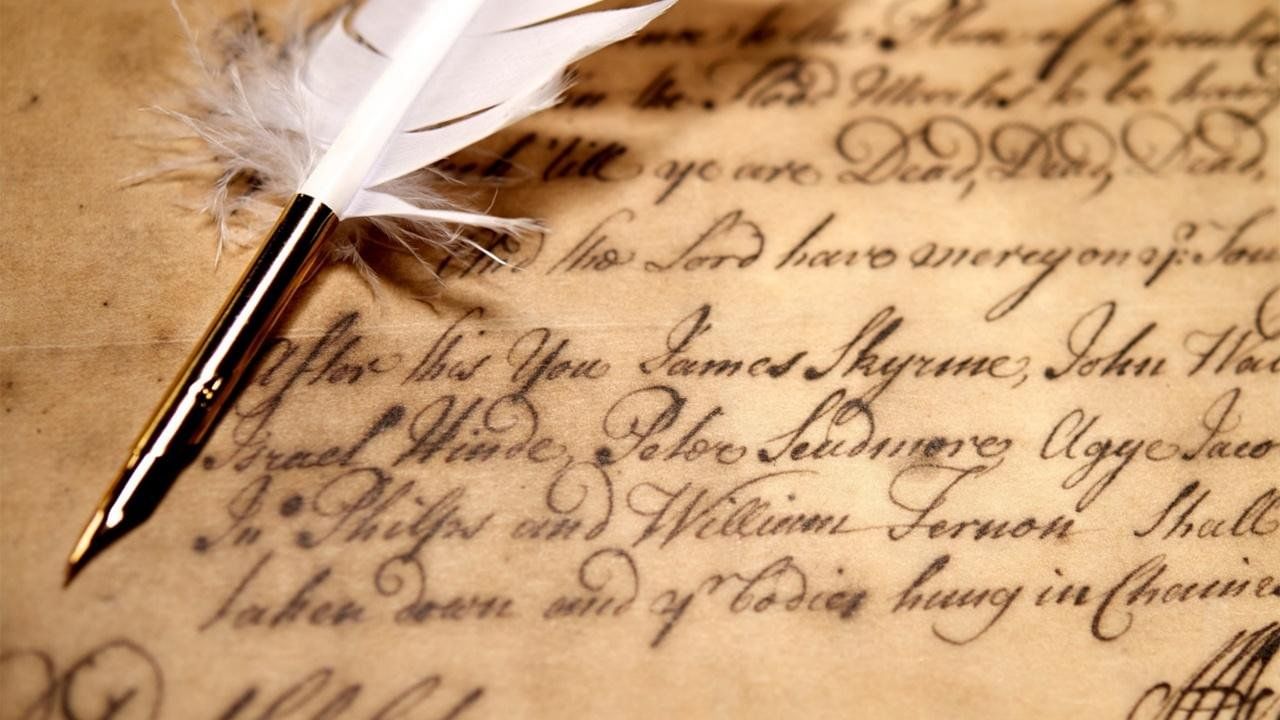 to the Place of
in the Flood Marks to be hung
'till ye are Dead, Dead, Dead,
And the Lord have mercy on yr. Sou
After this You James Skyrme, John Wa
Israel Hinde, Peter Scudmore Agge Jaco
Jn° Philps and William Fernon Shall
taken down and yr bodies hung in Chaines